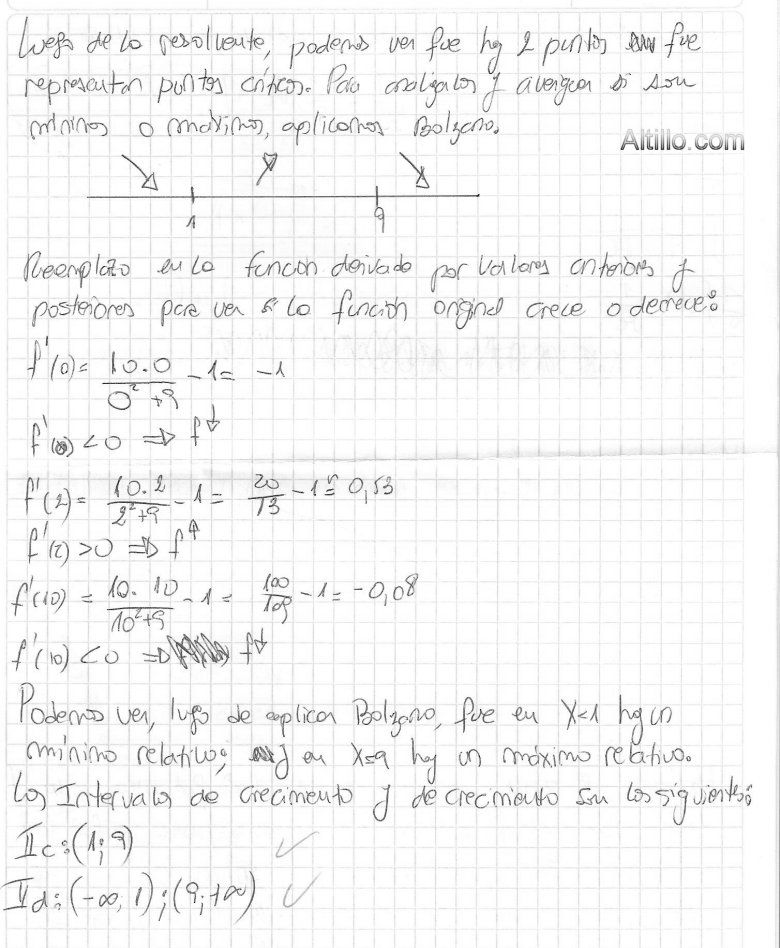 Luego de la resolvente, podemos ver que hay 2 puntos que
representan puntos críticos. Para analizarlos y averiguar si son
mínimos o máximos, aplicamos Bolzano.
Altillo.com
1 9
Reemplazo en la función derivada por valores anteriores y
posteriores para ver si la función original crece o decrece:
f'(0) = \frac{10.0}{0^2+9} - 1 = -1
f'(0) < 0 ⇒ f↓
f'(2) = \frac{10.2}{2^2+9} - 1 = \frac{20}{13} - 1 ≅ 0,53
f'(2) > 0 ⇒ f↑
f'(10) = \frac{10.10}{10^2+9} - 1 = \frac{100}{109} - 1 = -0,08
f'(10) < 0 ⇒ f↓
Podemos ver, luego de aplicar Bolzano, que en X=1 hay un
mínimo relativo; y en X=9 hay un máximo relativo.
Los Intervalos de crecimiento y decrecimiento son los siguientes:
Ic: (1; 9)
Id: (-∞; 1); (9; +∞)